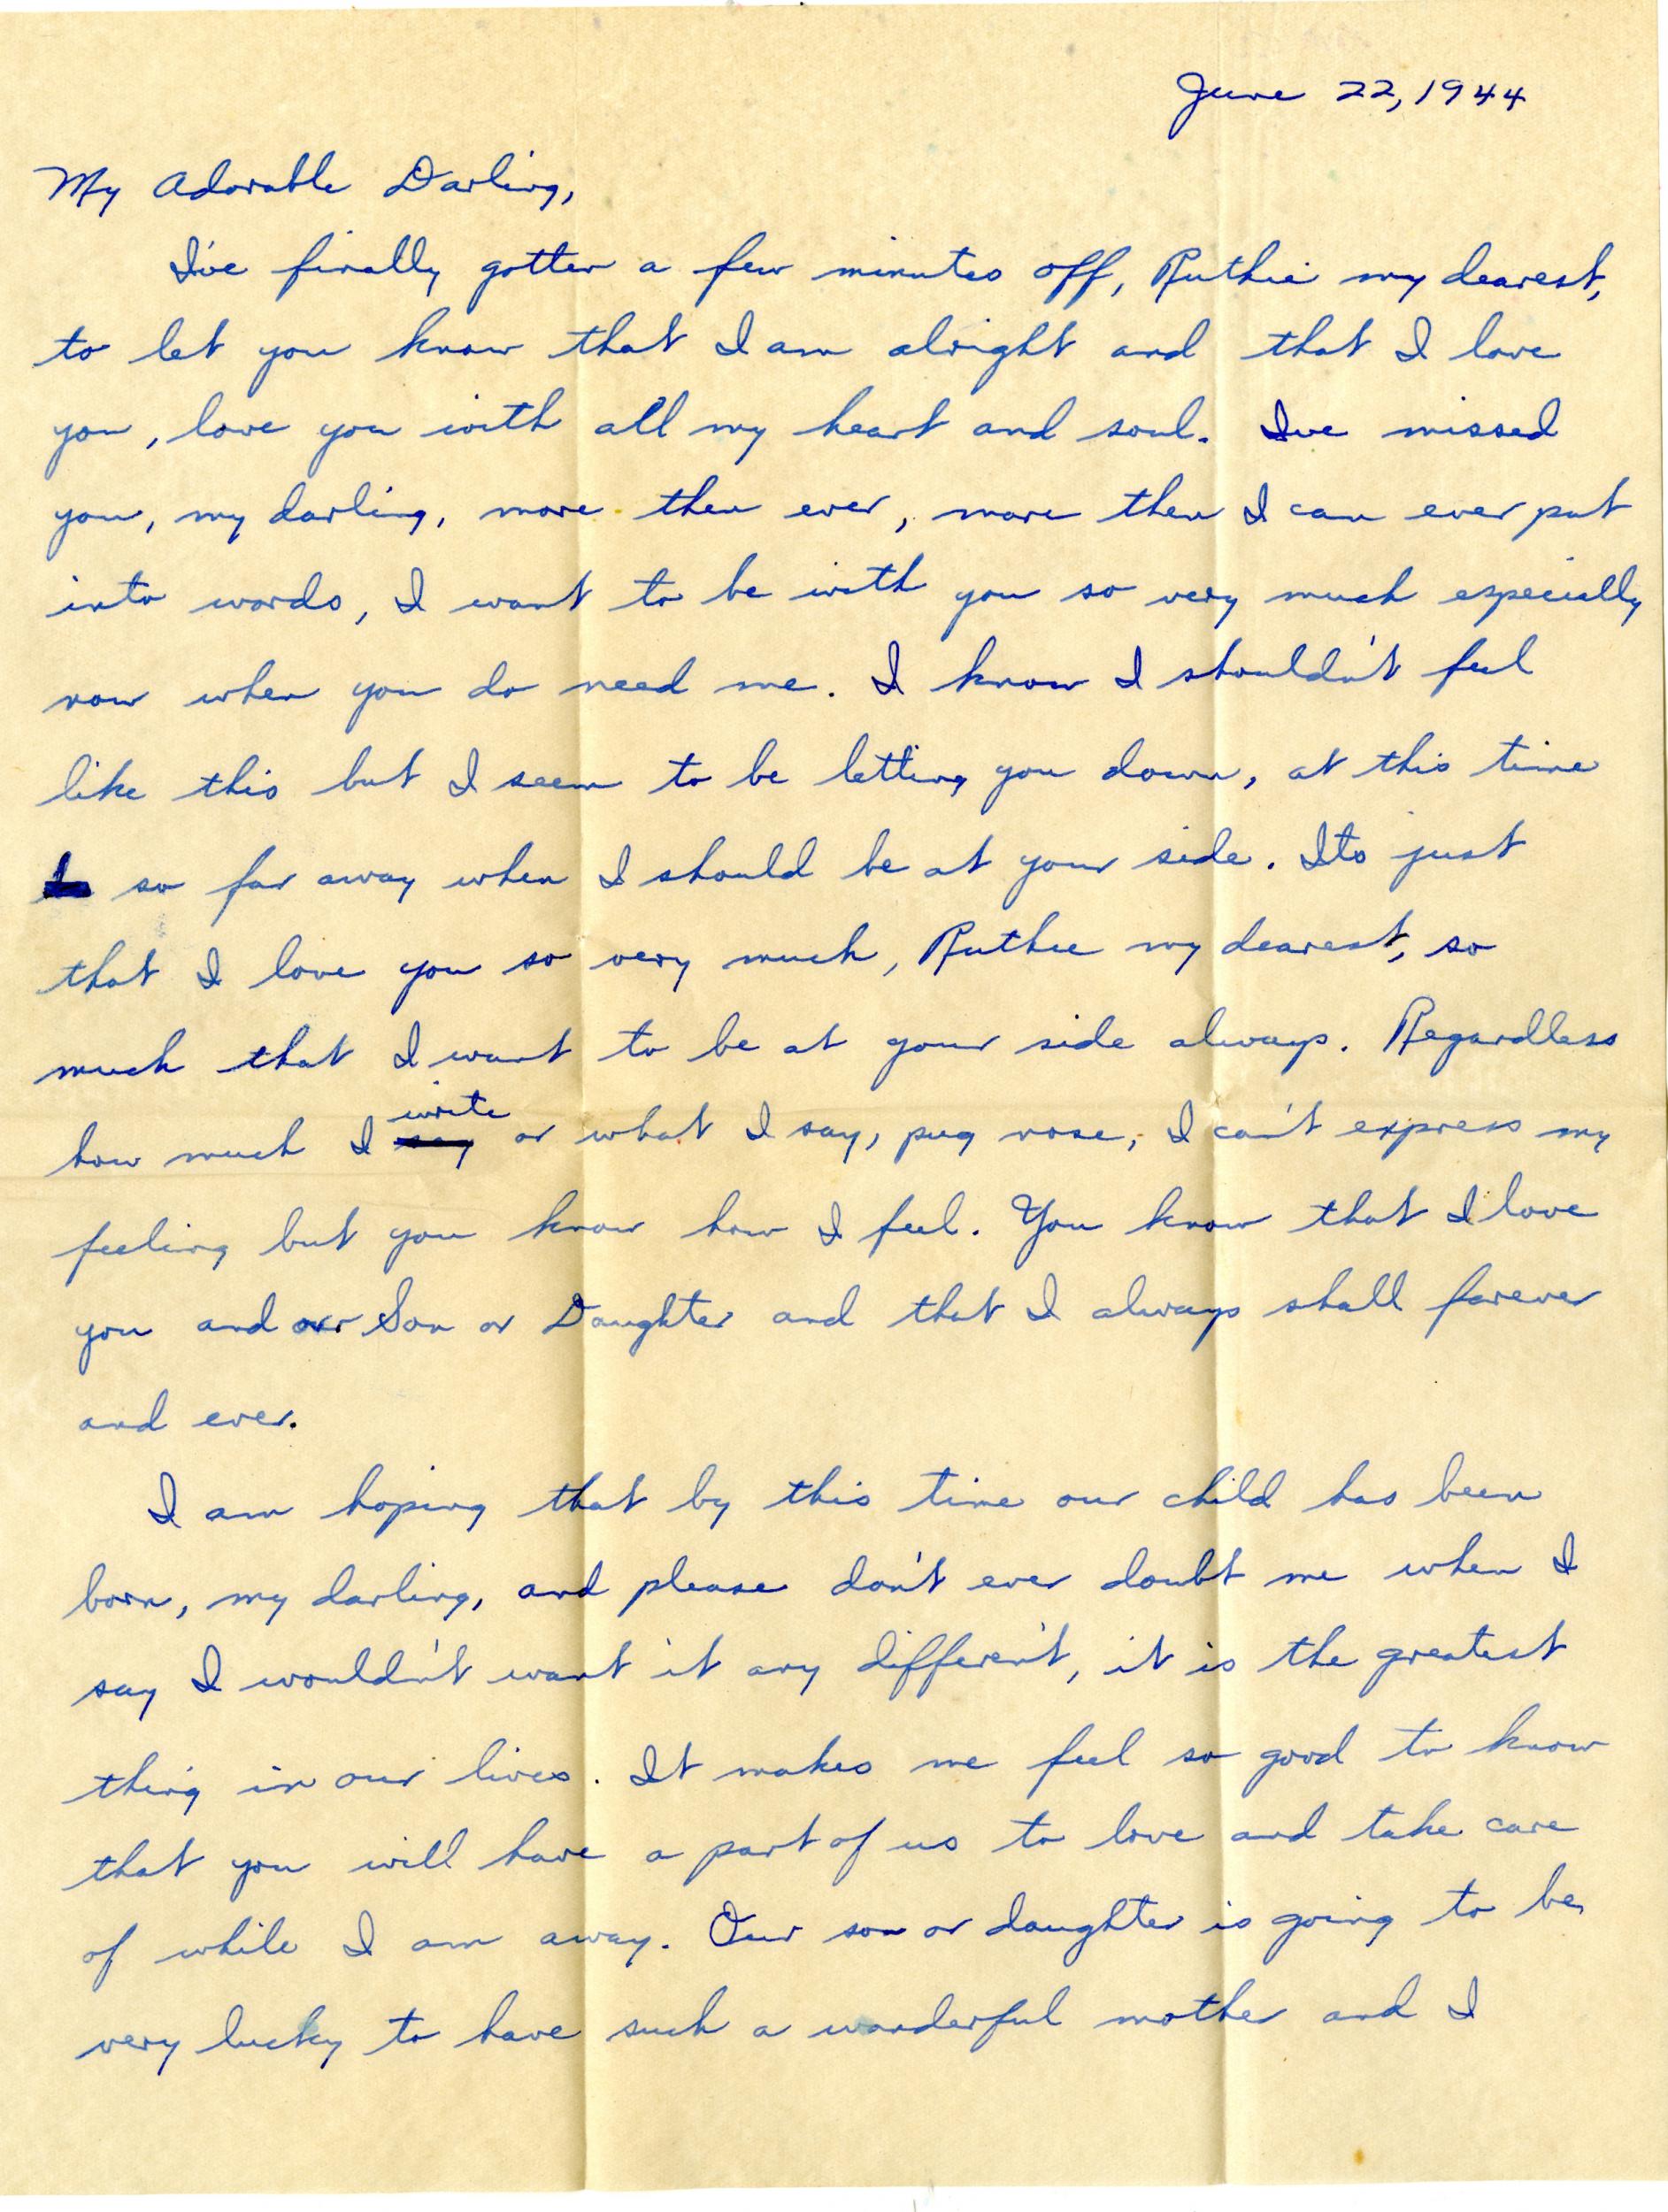 June 22, 1944
My Adorable Darling,
I've finally gotten a few minutes off, Ruthie my dearest,
to let you know that I am alright and that I love
you, love you with all my heart and soul. Ive missed
you, my darling, more then ever, more then I can ever put
into words, I want to be with you so very much especially
now when you do need me. I know I shouldn't feel
like this but I seem to be letting you down, at this time
so far away when I should be at your side. Its just
that I love you so very much, Ruthie my dearest, so
much that I want to be at your side always. Regardless
how much I say write or what I say, pug nose, I can't express my
feeling but you know how I feel. You know that I love
you and our Son or Daughter and that I always shall forever
and ever.
I am hoping that by this time our child has been
born, my darling, and please don't ever doubt me when I
say I wouldn't want it any differen't, it is the greatest
thing in our lives. It makes me feel so good to know
that you will have a part of us to love and take care
of while I am away. Our son or daughter is going to be
very lucky to have such a wonderful mother and I